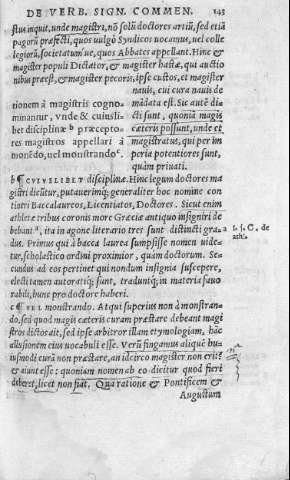 DE VERB. SIGN. COMMEN. 143
stus inquit, unde magistri, nō solū doctores artiū, sed etiā
pagorū præfecti, quos vulgò Syndicos vocamus, vel colle
legiorū, societatum'ue, quos Abbates appellant. Hinc &
magister populi Dictator, & magister hastæ, qui auctio
nibus præest, & magister pecoris, ipse custos, et magister
nauis, cui cura nauis de
tionem à magistris cogno-
mādata est. Sic autē di
minantur, vnde & cuiusli-
cti sunt, quoniā magis
bet disciplinæ b præcepto-
cæteris possunt, unde et
res magistros appellari à
magistratus, qui per im
monēdo, vel monstrando c.
peria potentiores sunt,
quàm priuati.
b ¶ CVIVSLIBET disciplinæ. Hinc legum doctores ma
gistri dicūtur, putauerimq; generaliter hoc nomine con
tineri Baccalaureos, Licentiatos, Doctores. Sicut enim
athletæ tribus coronis more Græcia antiquo insigniri de
bebant a, ita in agone literario tres sunt distincti gra-
a l. j. C. de
dus. Primus qui à bacca laurea sumpsisse nomen uide-
tur, scholastico ordini proximior, quam doctorum. Se-
cundus ad eos pertinet qui nondum insignia suscepere,
electi tamen autoratiq; sunt, traduntq; in materia fauo
rabili, hunc pro doctore haberi.
c ¶ VEL monstrando. At qui superius non à monstran-
do, sed quod magis cæteris curam præstare debeant magi
stros dictos ait, sed ipse arbitror illam etymologiam, hāc
allusionem eius vocabuli esse. Verū fingamus aliquē hu-
iusmodi curā non præstare, an idcirco magister non erit?
& aiunt esse: quoniam nomen ab eo dicitur quod fieri
deberet, licet non fiat. Qua ratione & Pontificem &
Augustum